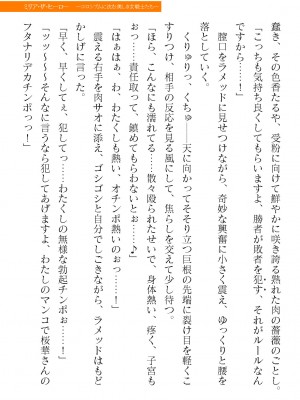 蠢き、その色香たるや、受粉に向けて鮮やかに咲き誇る熟れた肉の薔薇のごとし。
「こっちも気持ち良くしてもらいますよ、勝者が敗者を犯す、それがルールなん
ですから……！」
　膣口をラメッドに見せつけながら、奇妙な興奮に小さく震え、ゆっくりと腰を
すりつけ、相手の反応を見る風にして、焦らしを交えて少し待つ。
　くりゅりっ、くちゅ――天に向かってそそり立つ巨根の先端に裂け目を軽くこ
「ほら、こんなにも濡れてる……散々殴られたせいで、身体熱い、疼く、子宮も
おっ……責任取って、鎮めてもらわないとぉ…♪」
「はぁはぁ、わ、わたくしも熱い、オチンポ熱いのぉっ……！」
　震える右手を肉サオに添え、ゴシゴシと自分でしごきながら、ラメッドはもど
かしげに言った。
「早く、早くしてぇ、犯してっ……わたくしの無様な勃起チンポぉ……！」
「ッッ～～～そんなに言うなら犯してあげますよ、わたしのマンコで桜華さんの
フタナリデカチンポっっ！」